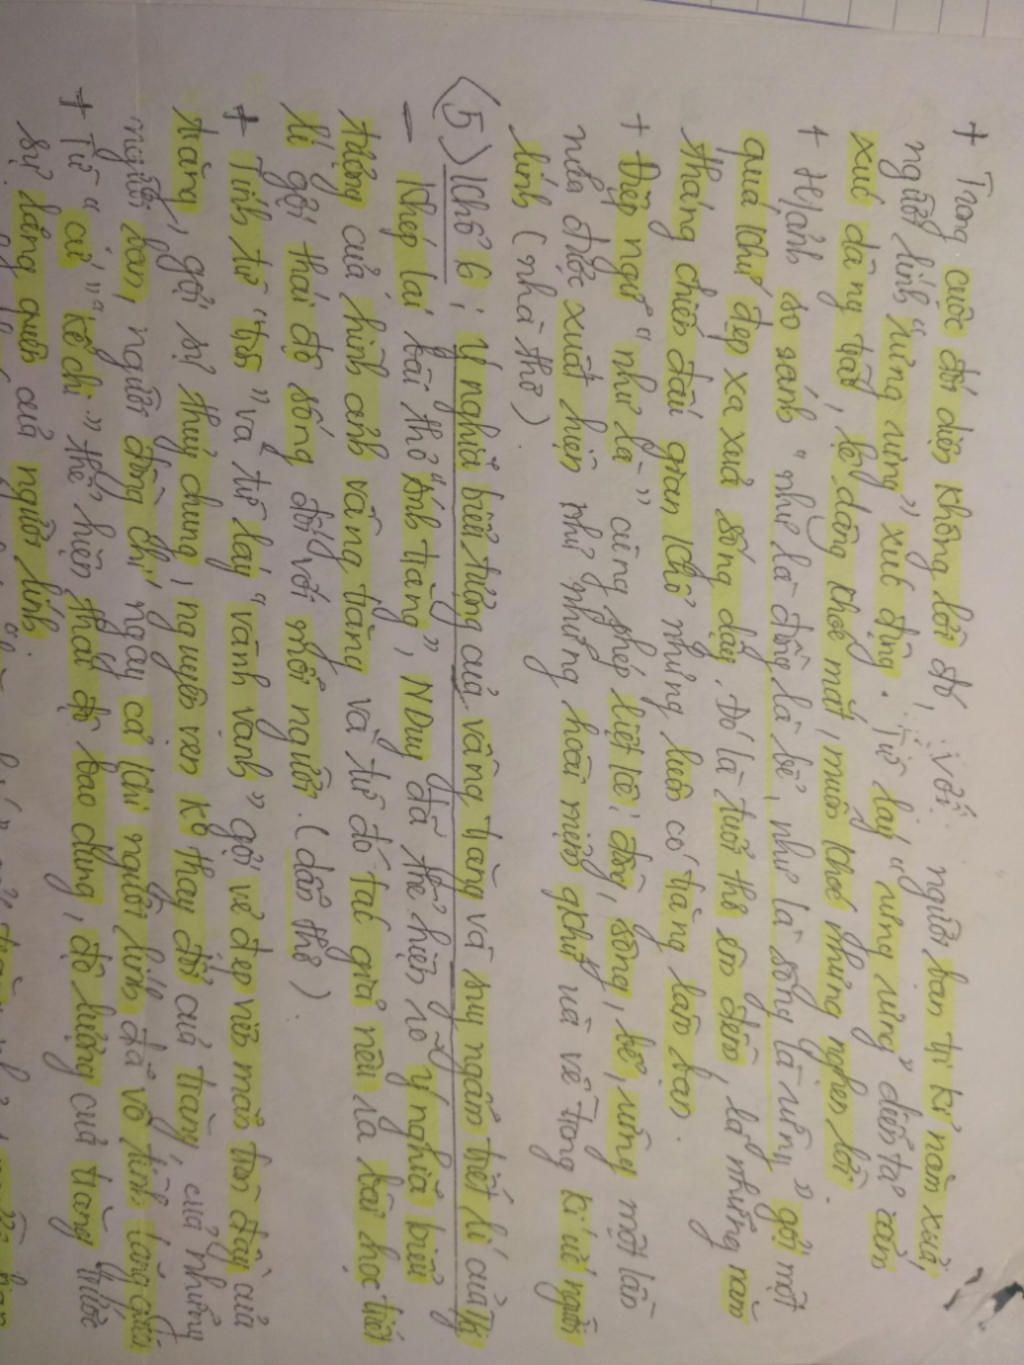 + Trong cuộc đối diện không lời đó, với người bạn tri kỉ năm xưa,
người lính "rưng rưng" xúc động. Từ láy "rưng rưng" diễn tả cảm
xúc dâng trào, lệ dâng khoé mắt, muốn khóc nhưng nghẹn lời.
+ H/ảnh so sánh "như là đồng là bể, như là sông là rừng" gợi một
quá khứ đẹp xa xưa sống dậy. Đó là tuổi thơ êm đềm, là những năm
tháng chiến đấu gian khổ nhưng luôn có trăng làm bạn.
+ Điệp ngữ "như là" cùng phép liệt kê: đồng, sông, bể, rừng một lần
nữa được xuất hiện như những hoài niệm quá khứ ùa về trong kí ức người
lính (nhà thơ).
(5) Khổ 6: Ý nghĩa biểu tượng của vầng trăng và suy ngẫm triết lí của
– Khép lại bài thơ "Ánh trăng", NDuy đã thể hiện rõ ý nghĩa biểu
tượng của hình ảnh vầng trăng và từ đó tác giả nêu ra bài học triết
lí gợi thái độ sống đối với mỗi người. (dẫn thơ)
+ Tính từ "tròn" và từ láy "vành vạnh" gợi vẻ đẹp viên mãn tròn đầy của
trăng, gợi sự thủy chung, nguyên vẹn kº thay đổi của trăng, của những
người bạn, người đồng chí, ngay cả khi người lính đã vô tình lãng quên
+ Từ "cứ", "kể chi" thể hiện thái độ bao dung, độ lượng của trăng trước
sự lãng quên của người lính.